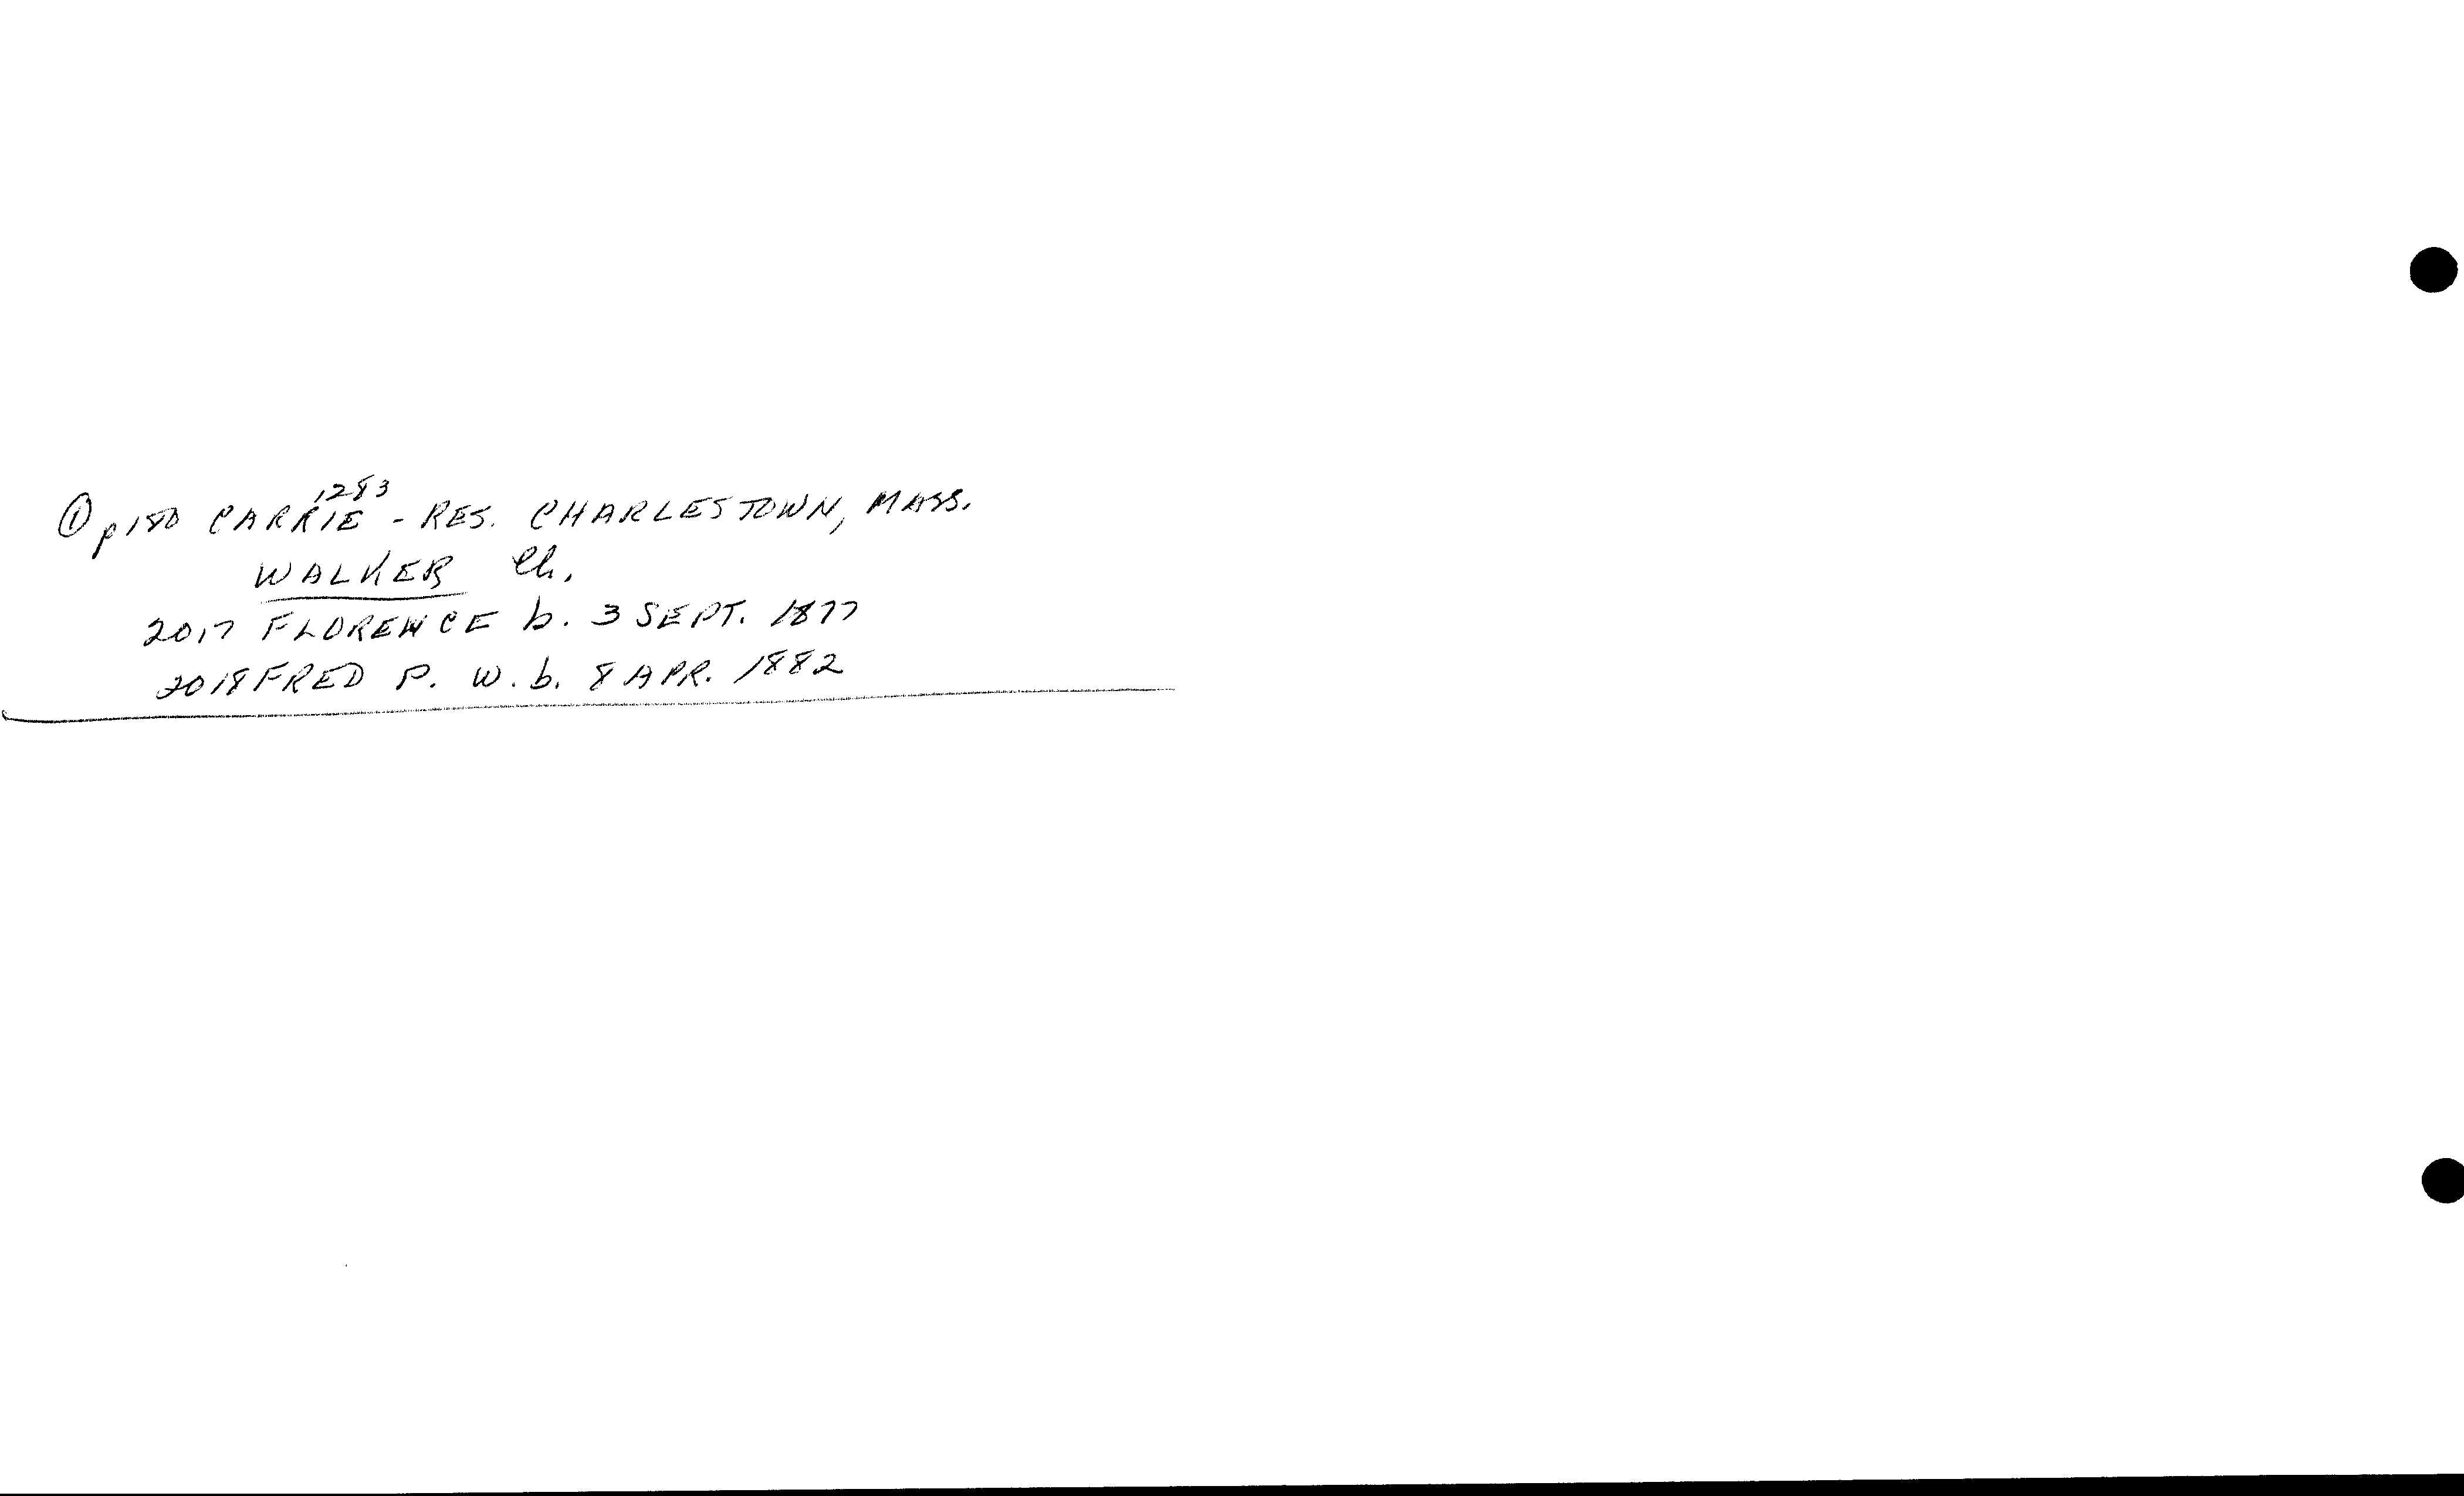 ① p180 CARRIE 1283 - RES. CHARLESTOWN, MASS.
WALKER Ch.
2017 FLORENCE b. 3 SEPT. 1877
2018 FRED P. W. b. 8 APR. 1882